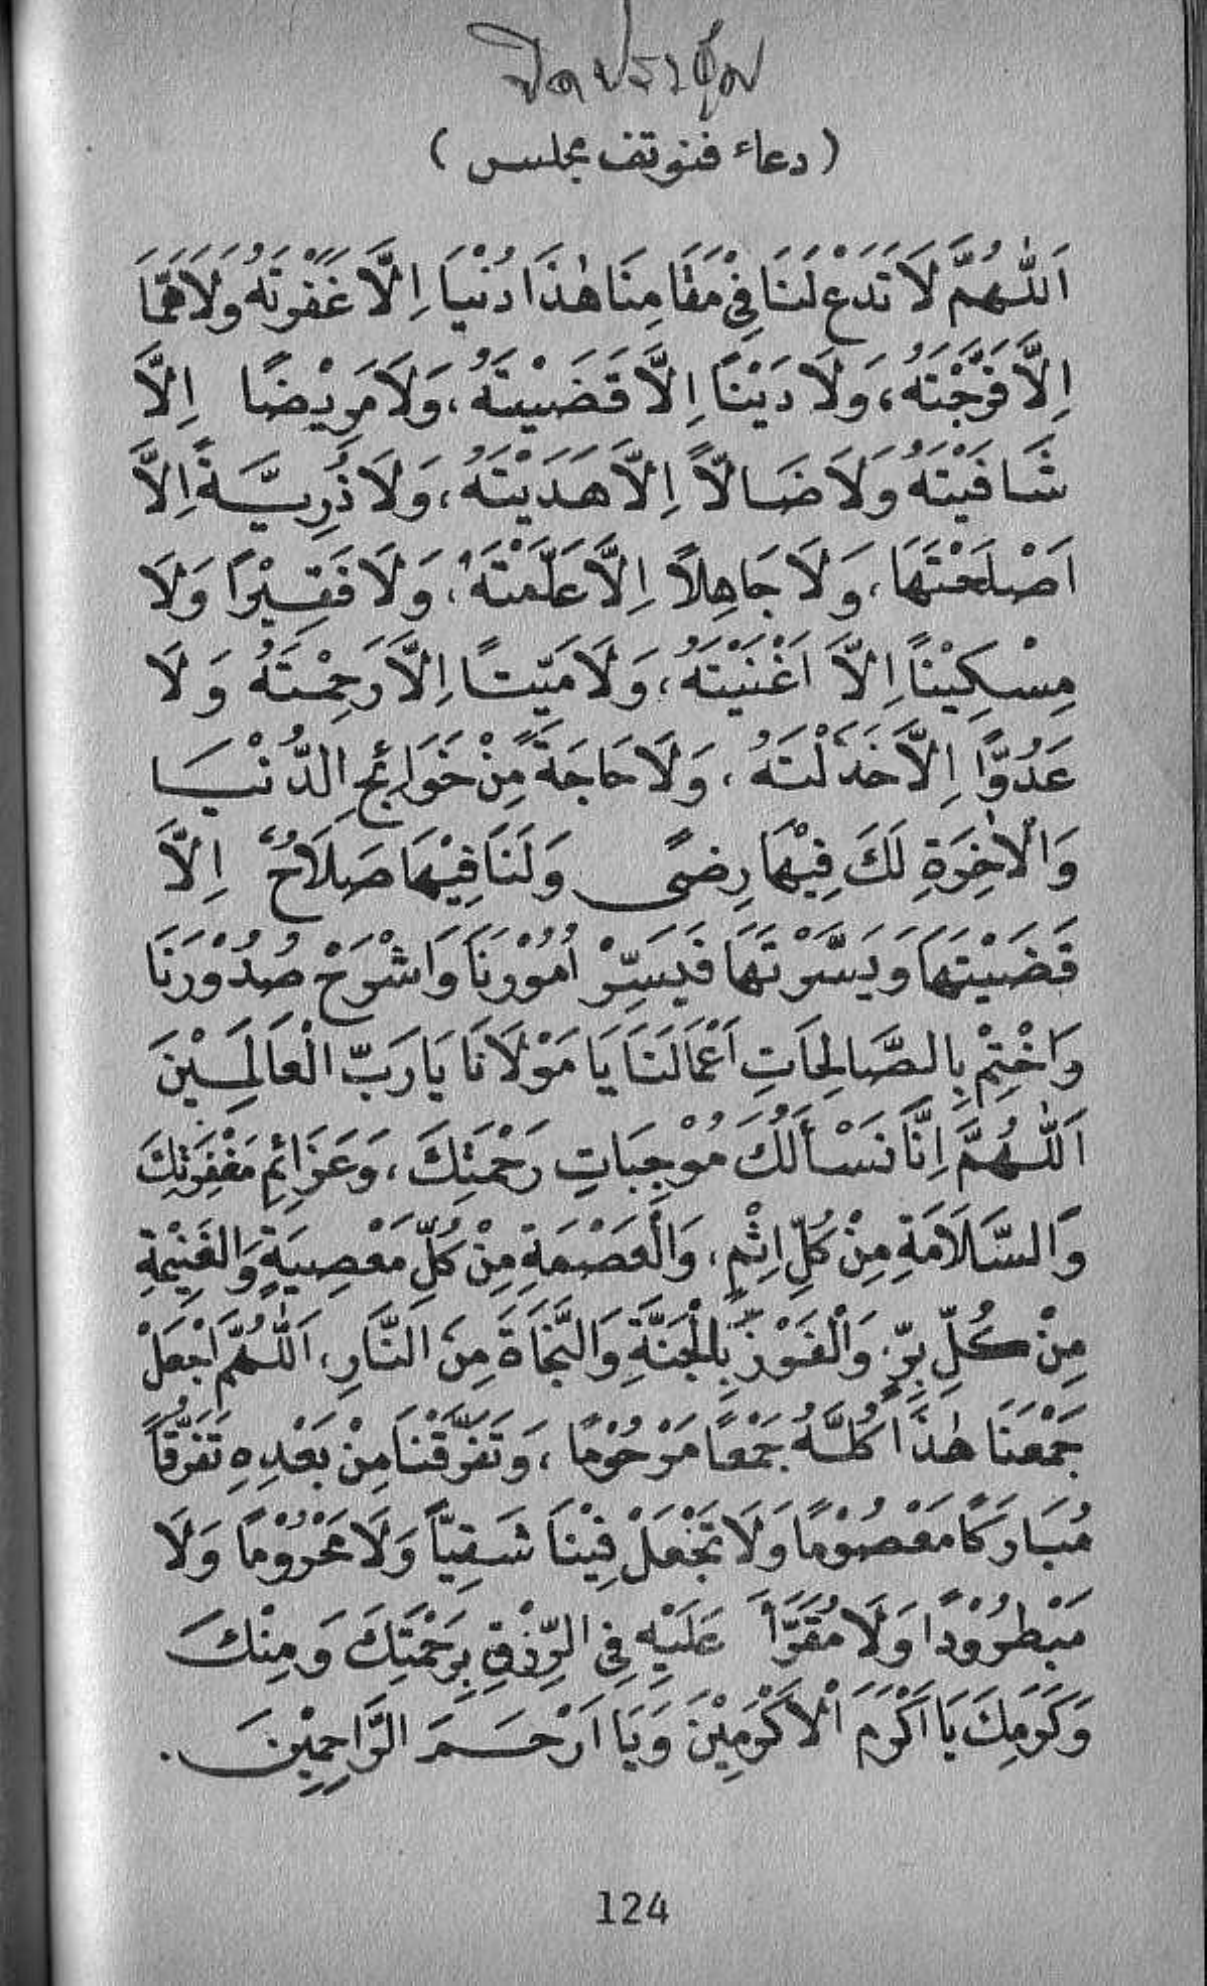 ปิดประชุม
(دعاء فنوتف مجلس)
اَللّٰهُمَّ لَا تَدَعْ لَنَا فِيْ مَقَامِنَا هٰذَا دُنْيَا اِلَّا غَفَرْتَهُ وَلَا هَمًّا
اِلَّا فَرَّجْتَهُ، وَلَا دَيْنًا اِلَّا قَضَيْتَهُ، وَلَا مَرِيْضًا اِلَّا
شَافَيْتَهُ وَلَا ضَالًّا اِلَّا هَدَيْتَهُ، وَلَا ذُرِيَّةً اِلَّا
اَصْلَحْتَهَا، وَلَا جَاهِلًا اِلَّا عَلَّمْتَهُ، وَلَا فَقِيْرًا وَلَا
مِسْكِيْنًا اِلَّا اَغْنَيْتَهُ، وَلَا مَيِّتًا اِلَّا رَحِمْتَهُ وَلَا
عَدُوًّا اِلَّا خَذَلْتَهُ، وَلَا حَاجَةً مِنْ حَوَائِجِ الدُّنْيَا
وَالْاٰخِرَةِ لَكَ فِيْهَا رِضًى وَلَنَا فِيْهَا صَلَاحٌ اِلَّا
قَضَيْتَهَا وَيَسَّرْتَهَا فَيَسِّرْ اُمُوْرَنَا وَاشْرَحْ صُدُوْرَنَا
وَاخْتِمْ بِالصَّالِحَاتِ اَعْمَالَنَا يَا مَوْلَانَا يَا رَبَّ الْعَالَمِيْنَ
اَللّٰهُمَّ اِنَّا نَسْأَلُكَ مُوْجِبَاتِ رَحْمَتِكَ، وَعَزَائِمِ مَغْفِرَتِكَ
وَالسَّلَامَةِ مِنْ كُلِّ اِثْمٍ، وَالْعِصْمَةِ مِنْ كُلِّ مَعْصِيَةٍ وَالْغَنِيْمَةِ
مِنْ كُلِّ بِرٍّ، وَالْفَوْزَ بِالْجَنَّةِ وَالنَّجَاةَ مِنَ النَّارِ، اَللّٰهُمَّ اجْعَلْ
جَمْعَنَا هٰذَا كُلَّهُ جَمْعًا مَرْحُوْمًا، وَتَفَرَّقْنَا مِنْ بَعْدِهِ تَفَرُّقًا
مُبَارَكًا مَعْصُوْمًا وَلَا تَجْعَلْ فِيْنَا شَقِيًّا وَلَا مَحْرُوْمًا وَلَا
مَطْرُوْدًا وَلَا مُقَرًّا عَلَيْهِ فِي الرِّزْقِ بِرَحْمَتِكَ وَمِنْكَ
وَكَرَمِكَ يَا اَكْرَمَ الْاَكْرَمِيْنَ وَيَا اَرْحَمَ الرَّاحِمِيْنَ.
124